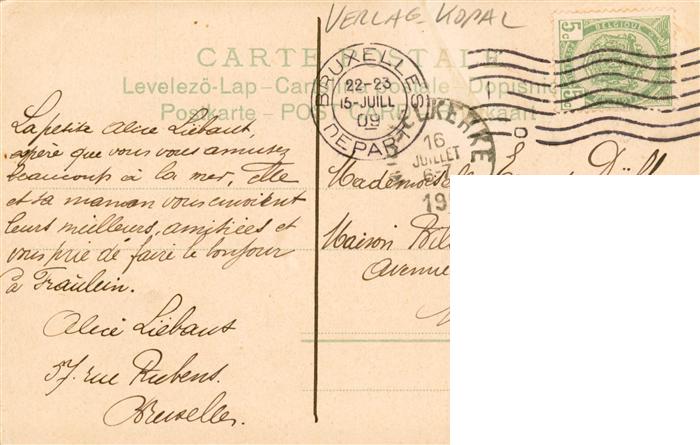 VERLAG KOPAL
CARTE POSTALE
Levelezö-Lap - Cartolina Postale - Dopisnice
Postkarte - POST CARD - Briefkaart
BELGIQUE
5c 5c
BRUXELLES
22-23
15-JUILL
09
DEPART
KERKE
16
JUILLET
6-7
19
La petite Alice Liebaut,
espère que vous vous amusez
beaucoup à la mer, Elle
et sa maman vous envoient
leurs meilleurs, amitiées et
vous prie de faire le bonjour
à Fraülein.
Alice Liebaut
57. rue Rubens.
Bruxelles.
Mademoiselle
Maison
Avenue